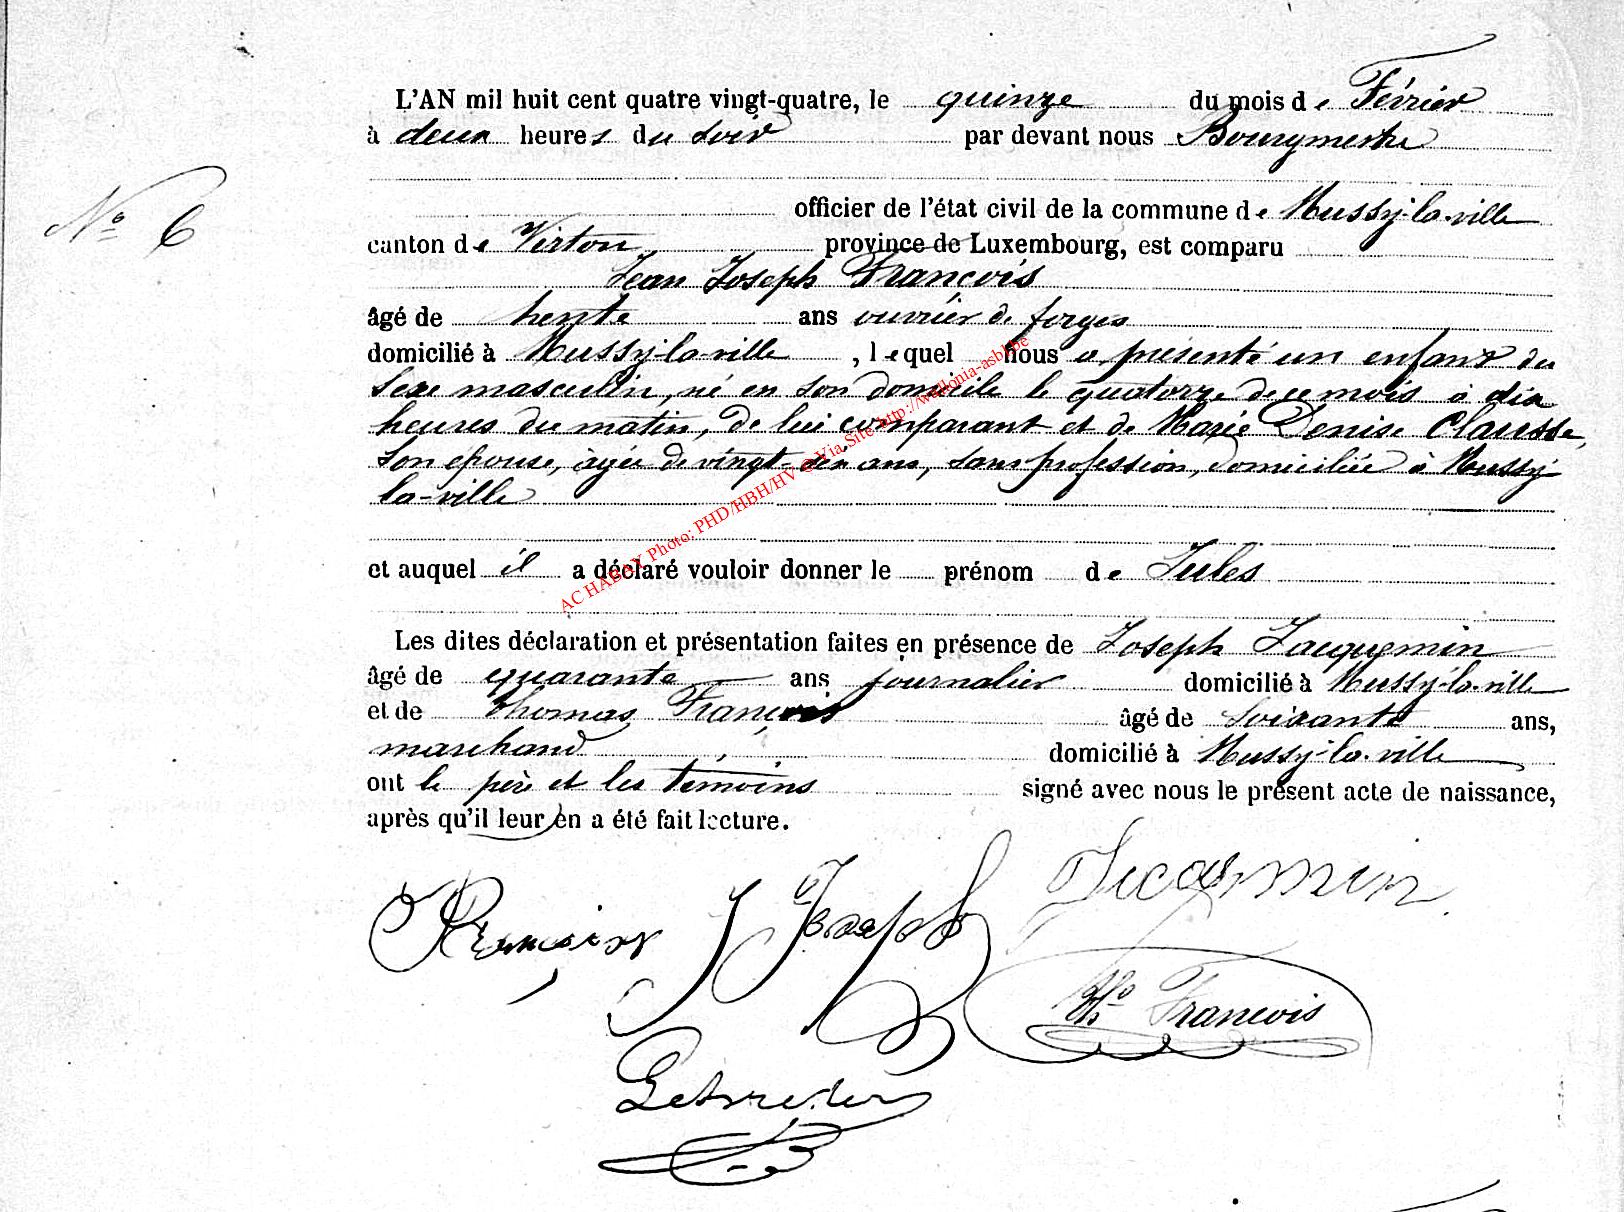 L'AN mil huit cent quatre vingt-quatre, le quinze du mois de Février
à deux heures du soir par devant nous Bourgmestre
officier de l'état civil de la commune de Mussy-la-ville
N° 6
canton de Virton province de Luxembourg, est comparu
Jean Joseph François
âgé de trente ans ouvrier de forges
domicilié à Mussy-la-ville, lequel nous a présenté un enfant du
sexe masculin, né en son domicile le quatorze de ce mois à dix
heures du matin, de lui comparant et de Marie Denise Clausse,
son épouse, âgée de vingt- ans, sans profession, domiciliée à Mussy-
la-ville
AC HABAY Photo: PHD/HBH/HV @ Via Site http://wallonia-asbl.be
et auquel il a déclaré vouloir donner le prénom de Jules
Les dites déclaration et présentation faites en présence de Joseph Jacquemin
âgé de quarante ans journalier domicilié à Mussy-la-ville
et de Thomas François âgé de soixante ans,
marchand domicilié à Mussy-la-ville
ont le père et les témoins signé avec nous le présent acte de naissance,
après qu'il leur en a été fait lecture.
François J Joseph
Th° François